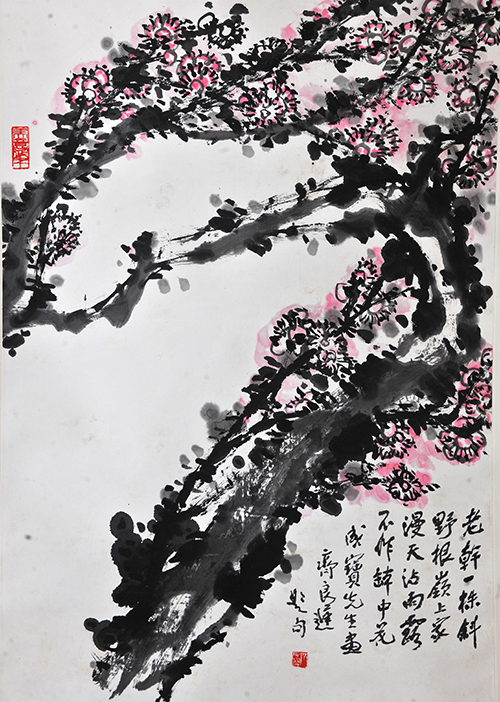 老幹一株斜
野根嶺上家
漫天沾雨露
不作缽中花
成寶先生畫
齊良遲
題句